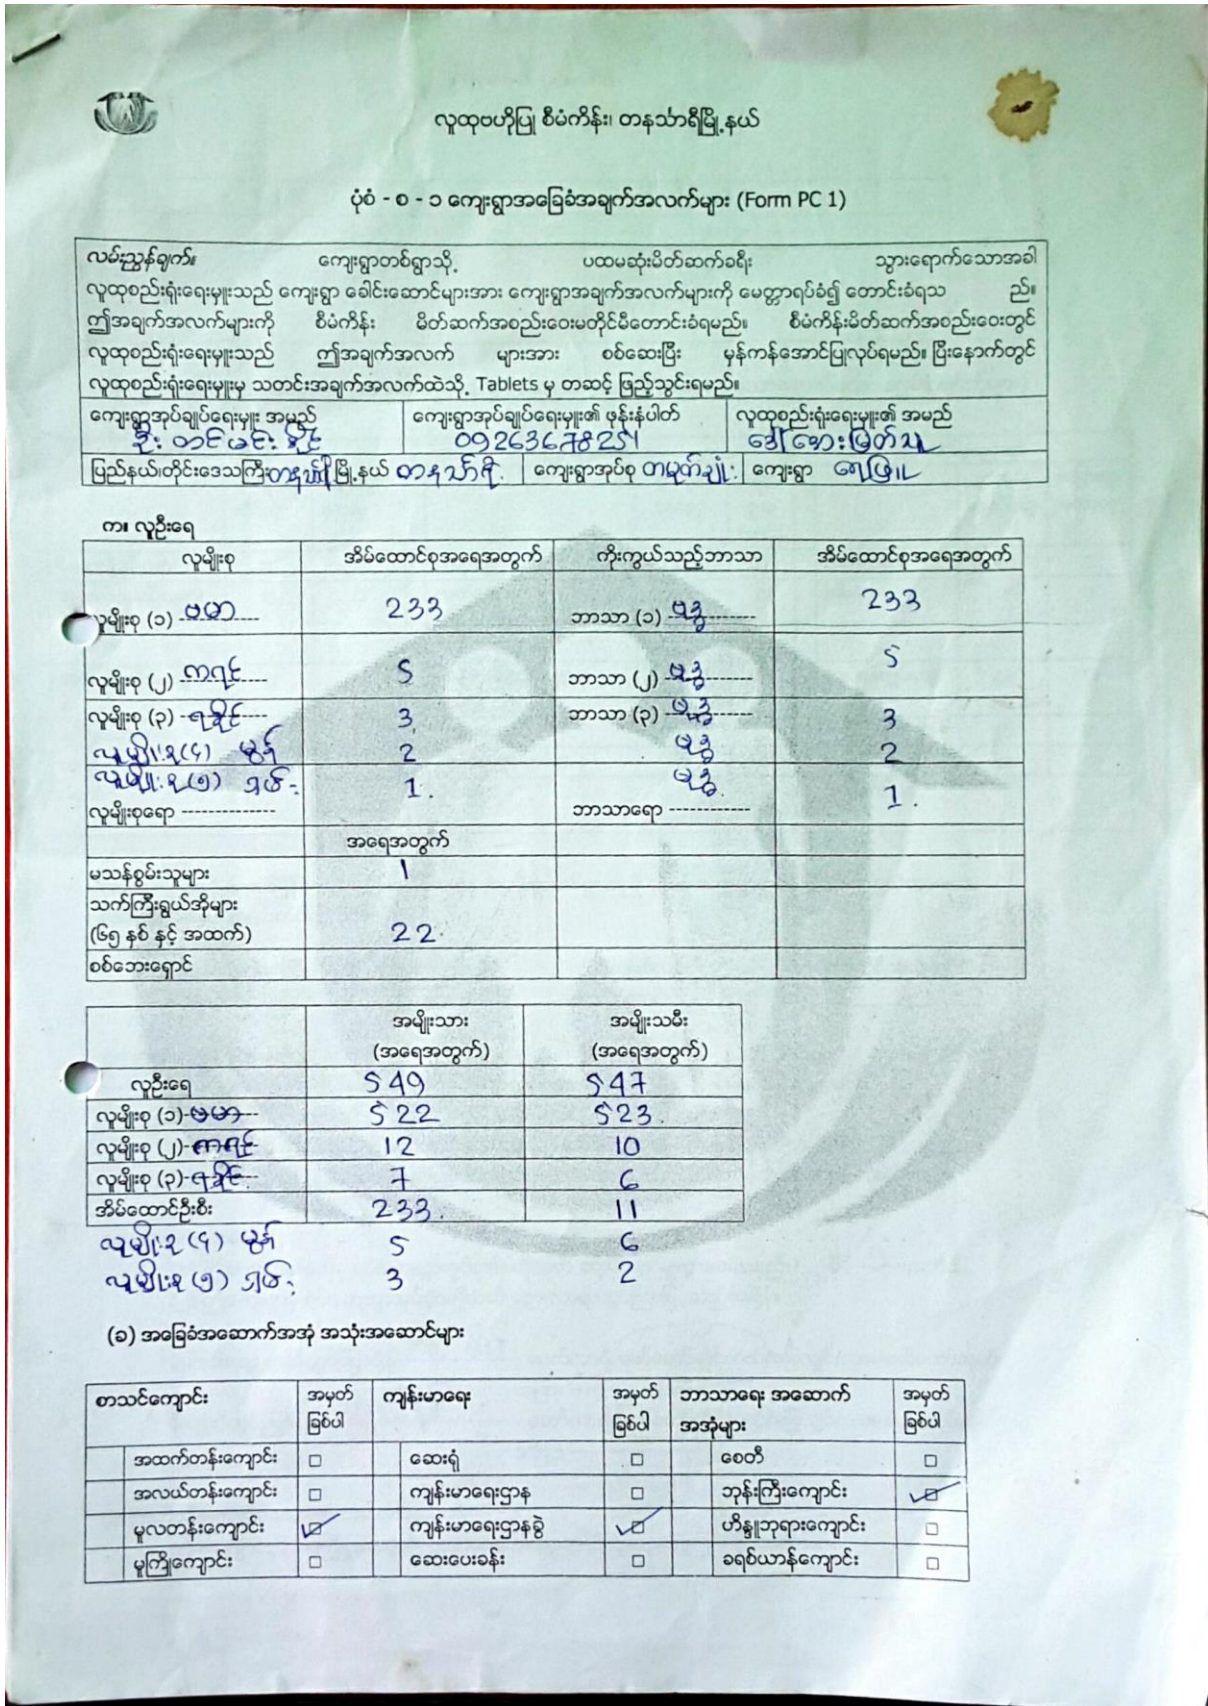 လူထုဗဟိုပြု စီမံကိန်း၊ တနင်္သာရီမြို့နယ်
ပုံစံ - စ - ၁ ကျေးရွာအခြေခံအချက်အလက်များ (Form PC 1)
လမ်းညွှန်ချက်။ ကျေးရွာတစ်ရွာသို့ ပထမဆုံးမိတ်ဆက်ခရီး သွားရောက်သောအခါ
လူထုစည်းရုံးရေးမှူးသည် ကျေးရွာ ခေါင်းဆောင်များအား ကျေးရွာအချက်အလက်များကို မေတ္တာရပ်ခံ၍ တောင်းခံရသ ည်။
ဤအချက်အလက်များကို စီမံကိန်း မိတ်ဆက်အစည်းဝေးမတိုင်မီတောင်းခံရမည်။ စီမံကိန်းမိတ်ဆက်အစည်းဝေးတွင်
လူထုစည်းရုံးရေးမှူးသည် ဤအချက်အလက် များအား စစ်ဆေးပြီး မှန်ကန်အောင်ပြုလုပ်ရမည်။ ပြီးနောက်တွင်
လူထုစည်းရုံးရေးမှူးမှ သတင်းအချက်အလက်ထဲသို့ Tablets မှ တဆင့် ဖြည့်သွင်းရမည်။
ကျေးရွာအုပ်ချုပ်ရေးမှူး အမည် ကျေးရွာအုပ်ချုပ်ရေးမှူး၏ ဖုန်းနံပါတ် လူထုစည်းရုံးရေးမှူး၏ အမည်
ဦးတင်မင်းစိုင် 09263678251 ဒေါ်အေးမြတ်သူ
ပြည်နယ်/တိုင်းဒေသကြီး တနင်္သာရီ မြို့နယ် တနင်္သာရီ ကျေးရွာအုပ်စု တမုတ်ချုံ ကျေးရွာ ရေဖြူ
က။ လူဦးရေ
လူမျိုးစု အိမ်ထောင်စုအရေအတွက် ကိုးကွယ်သည့်ဘာသာ အိမ်ထောင်စုအရေအတွက်
လူမျိုးစု (၁) ဗမာ 233 ဘာသာ (၁) ဗုဒ္ဓ 233
လူမျိုးစု (၂) ကရင် 5 ဘာသာ (၂) ဗုဒ္ဓ 5
လူမျိုးစု (၃) ရခိုင် 3 ဘာသာ (၃) ဗုဒ္ဓ 3
လူမျိုးစု (၄) မွန် 2 ဗုဒ္ဓ 2
လူမျိုးစု (၅) ရှမ်း 1. ဗုဒ္ဓ 1.
လူမျိုးစုရော -------------- ဘာသာရော ------------
အရေအတွက်
မသန်စွမ်းသူများ 1
သက်ကြီးရွယ်အိုများ
(၆၅ နှစ် နှင့် အထက်) 22
စစ်ဘေးရှောင်
အမျိုးသား အမျိုးသမီး
(အရေအတွက်) (အရေအတွက်)
လူဦးရေ 549 547
လူမျိုးစု (၁) ဗမာ 522 523.
လူမျိုးစု (၂) ကရင် 12 10
လူမျိုးစု (၃) ရခိုင် 7 6
အိမ်ထောင်ဦးစီး 233. 11
လူမျိုးစု (၄) မွန် 5 6
လူမျိုးစု (၅) ရှမ်း 3 2
(ခ) အခြေခံအဆောက်အအုံ အသုံးအဆောင်များ
စာသင်ကျောင်း အမှတ် ကျန်းမာရေး အမှတ် ဘာသာရေး အဆောက် အမှတ်
ခြစ်ပါ ခြစ်ပါ အအုံများ ခြစ်ပါ
အထက်တန်းကျောင်း □ ဆေးရုံ □ စေတီ □
အလယ်တန်းကျောင်း □ ကျန်းမာရေးဌာန □ ဘုန်းကြီးကျောင်း ✓
မူလတန်းကျောင်း ✓ ကျန်းမာရေးဌာနခွဲ ✓ ဟိန္ဒူဘုရားကျောင်း □
မူကြိုကျောင်း □ ဆေးပေးခန်း □ ခရစ်ယာန်ကျောင်း □